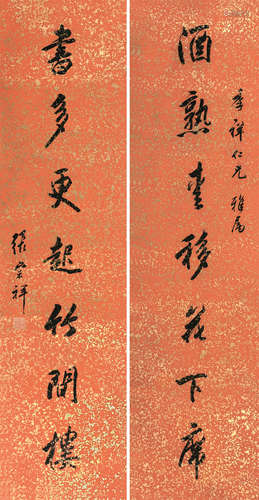 祥仁兄 雅屬
酒熟移花下席
書多更起竹間樓
張宗祥